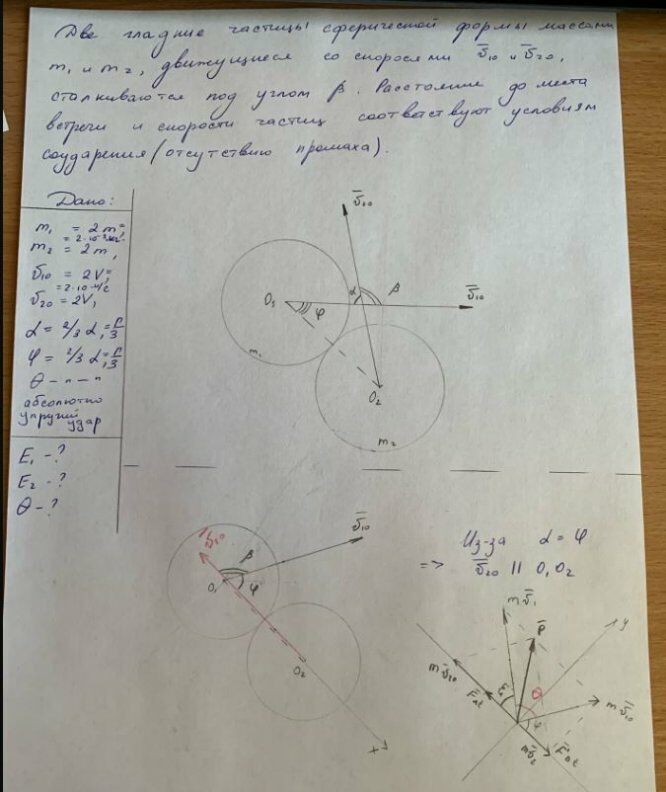 Две гладкие частицы сферической формы массами
m₁ и m₂, движущиеся со скоросями v̄₁₀ и v̄₂₀,
сталкиваются под углом β. Расстояние до места
встречи и скорости частиц соответствуют условиям
соударения (отсутствию промаха).
Дано:
m₁ = 2m;
m₂ = 2m,
v₁₀ = 2V;
v₂₀ = 2V,
α = 2/3 α,
φ = 2/3 α,
θ - " - "
абсолютно
упругий
удар
E₁ - ?
E₂ - ?
θ - ?
v̄₁₀
α
β
O₁
φ
v̄₁₀
m₁
O₂
m₂
v̄₂₀
β
v̄₁₀
O₁
φ
O₂
x
Из-за α = φ
=> v̄₂₀ || O₁O₂
m v̄₁
P̄
y
m v̄₂₀
F̄Δt
θ
m v̄₁₀
m v̄₂
F̄Δt